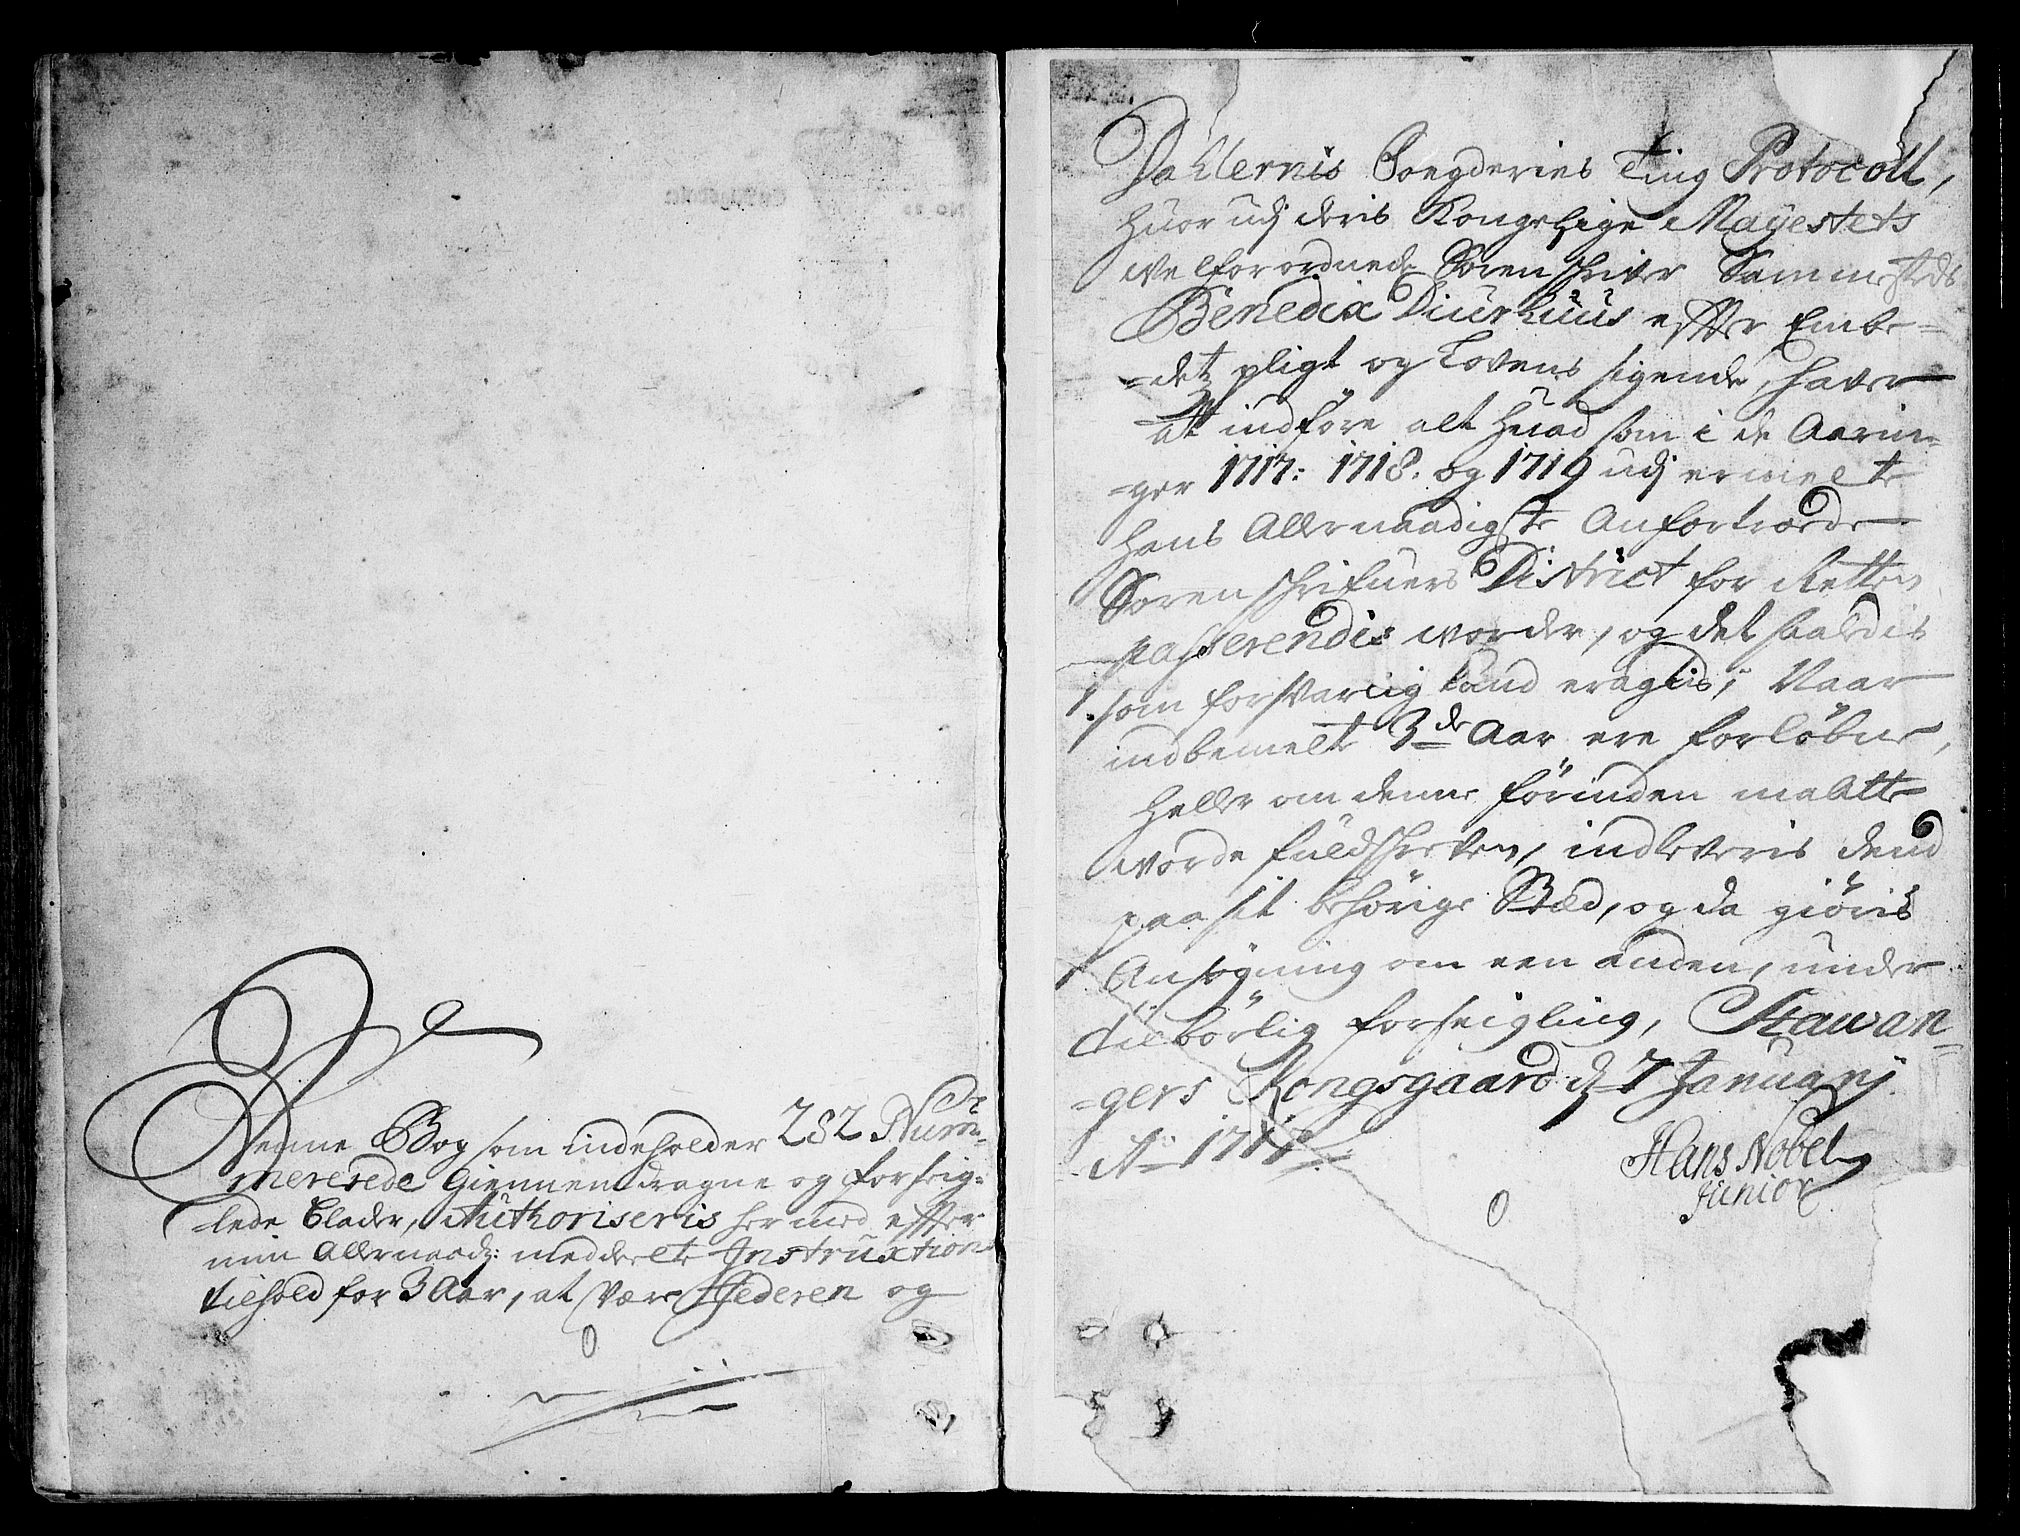 Denne Bog som indeholder 282 Num-
mererede Giennemdragne og forseig-
lede Blader, Authoriseris her med effter
min Allernaadg: meddeelte Instruxtion
tilhold for 3 Aar, at være Jederen og
Dahlernis Fougderies Ting Protocoll,
huor udj deris Kongelige Mayestets
velforordnede Sorenskriver Sammesteds
Benedix Diurhuus effter Embe-
-detz pligt og Lovens sigende, haver
at indføre alt huad som i de Aarin-
-ger 1717: 1718. og 1719 udj ermelte
hans Allernaadigste Anfortroede
Sorenskrifuers District for Retten
passerendis worder, og det saaledis
som forsvarlig kand eragtis, Naar
indbemelte 3de Aar ere forløbne,
heller om denne førinden maatte
worde fuldskreven, indleveris dend
paa sit behørige Stæd, og da giøris
Ansøgning om een anden, under
tilbørlig forseigling, Stawan-
-gers Kongsgaard d 7 Januarij
Ao 1717
Hans Nobel
Junior